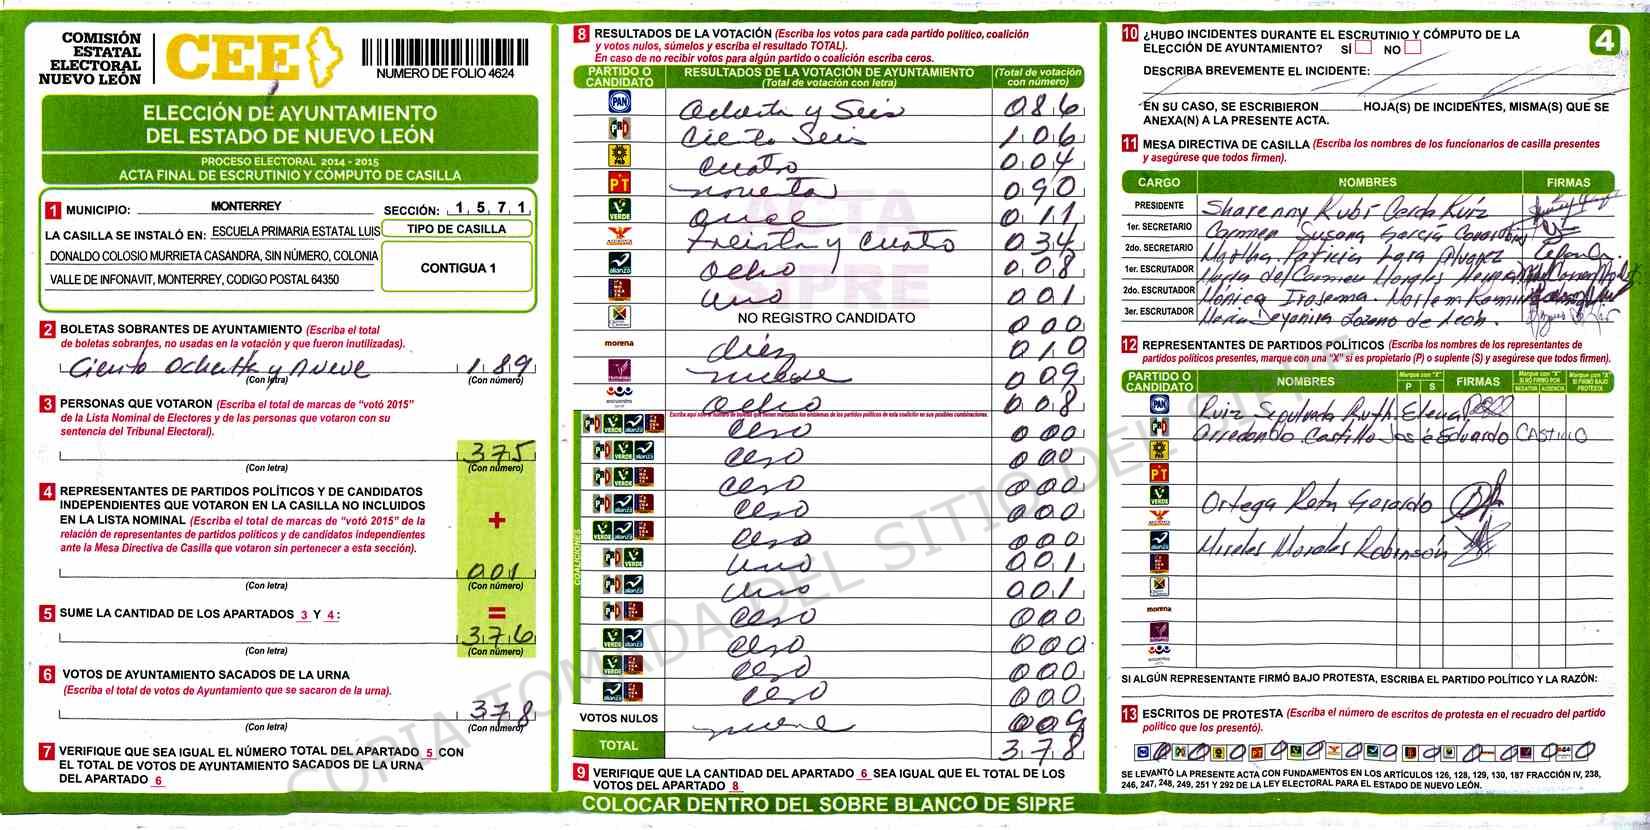 COMISIÓN
ESTATAL
ELECTORAL
NUEVO LEÓN
CEE
NUMERO DE FOLIO 4624
ELECCIÓN DE AYUNTAMIENTO
DEL ESTADO DE NUEVO LEÓN
PROCESO ELECTORAL 2014 - 2015
ACTA FINAL DE ESCRUTINIO Y CÓMPUTO DE CASILLA
1 MUNICIPIO: MONTERREY SECCIÓN: 1 5 7 1
LA CASILLA SE INSTALÓ EN: ESCUELA PRIMARIA ESTATAL LUIS
DONALDO COLOSIO MURRIETA CASANDRA, SIN NÚMERO, COLONIA
VALLE DE INFONAVIT, MONTERREY, CODIGO POSTAL 64350
TIPO DE CASILLA
CONTIGUA 1
2 BOLETAS SOBRANTES DE AYUNTAMIENTO (Escriba el total
de boletas sobrantes, no usadas en la votación y que fueron inutilizadas).
Ciento Ochenta y Nueve 1 8 9
(Con letra) (Con número)
3 PERSONAS QUE VOTARON (Escriba el total de marcas de "votó 2015"
de la Lista Nominal de Electores y de las personas que votaron con su
sentencia del Tribunal Electoral).
3 7 5
(Con letra) (Con número)
4 REPRESENTANTES DE PARTIDOS POLÍTICOS Y DE CANDIDATOS
INDEPENDIENTES QUE VOTARON EN LA CASILLA NO INCLUIDOS
EN LA LISTA NOMINAL (Escriba el total de marcas de "votó 2015" de la
relación de representantes de partidos políticos y de candidatos independientes
ante la Mesa Directiva de Casilla que votaron sin pertenecer a esta sección).
+
0 0 1
(Con letra) (Con número)
5 SUME LA CANTIDAD DE LOS APARTADOS 3 Y 4:
=
3 7 6
(Con letra) (Con número)
6 VOTOS DE AYUNTAMIENTO SACADOS DE LA URNA
(Escriba el total de votos de Ayuntamiento que se sacaron de la urna).
3 7 8
(Con letra) (Con número)
7 VERIFIQUE QUE SEA IGUAL EL NÚMERO TOTAL DEL APARTADO 5 CON
EL TOTAL DE VOTOS DE AYUNTAMIENTO SACADOS DE LA URNA
DEL APARTADO 6
8 RESULTADOS DE LA VOTACIÓN (Escriba los votos para cada partido político, coalición
y votos nulos, súmelos y escriba el resultado TOTAL).
En caso de no recibir votos para algún partido o coalición escriba ceros.
PARTIDO O CANDIDATO
RESULTADOS DE LA VOTACIÓN DE AYUNTAMIENTO
(Total de votación con letra)
(Total de votación con número)
PAN Ochenta y Seis 0 8 6
PRI Ciento Seis 1 0 6
PRD Cuatro 0 0 4
PT noventa 0 9 0
VERDE once 0 1 1
treinta y cuatro 0 3 4
alianza Ocho 0 0 8
uno 0 0 1
NO REGISTRO CANDIDATO 0 0 0
morena diez 0 1 0
nueve 0 0 9
encuentro Ocho 0 0 8
Escriba aquí sólo el número de boletas que tienen marcados los emblemas de los partidos políticos de esta coalición en sus posibles combinaciones.
COALICIONES
Cero 0 0 0
Cero 0 0 0
Cero 0 0 0
Cero 0 0 0
Cero 0 0 0
uno 0 0 1
uno 0 0 1
Cero 0 0 0
Cero 0 0 0
Cero 0 0 0
Cero 0 0 0
VOTOS NULOS nueve 0 0 9
TOTAL 3 7 8
ACTA
SIPRE
9 VERIFIQUE QUE LA CANTIDAD DEL APARTADO 6 SEA IGUAL QUE EL TOTAL DE LOS
VOTOS DEL APARTADO 8
COLOCAR DENTRO DEL SOBRE BLANCO DE SIPRE
10 ¿HUBO INCIDENTES DURANTE EL ESCRUTINIO Y CÓMPUTO DE LA
ELECCIÓN DE AYUNTAMIENTO? SÍ NO
4
DESCRIBA BREVEMENTE EL INCIDENTE:
EN SU CASO, SE ESCRIBIERON HOJA(S) DE INCIDENTES, MISMA(S) QUE SE
ANEXA(N) A LA PRESENTE ACTA.
11 MESA DIRECTIVA DE CASILLA (Escriba los nombres de los funcionarios de casilla presentes
y asegúrese que todos firmen).
CARGO NOMBRES FIRMAS
PRESIDENTE Sharenny Rubi Cerda Ruiz
1er. SECRETARIO Carmen Susana García
2do. SECRETARIO Martha Patricia Lara Alvarez
1er. ESCRUTADOR Maria del Carmen Morales
2do. ESCRUTADOR Mónica Irasema
3er. ESCRUTADOR Maria Deyanira Lozano de León.
12 REPRESENTANTES DE PARTIDOS POLÍTICOS (Escriba los nombres de los representantes de
partidos políticos presentes, marque con una "X" si es propietario (P) o suplente (S) y asegúrese que todos firmen).
PARTIDO O CANDIDATO
NOMBRES
Marque con "X"
P S
FIRMAS
PAN Ruiz Sepulveda Ruth Elena
PRI Arredondo Castillo José Eduardo CASTILLO
PRD
PT
VERDE Ortega Reta Gerardo
alianza Mireles Morales Robinsón
morena
SI ALGÚN REPRESENTANTE FIRMÓ BAJO PROTESTA, ESCRIBA EL PARTIDO POLÍTICO Y LA RAZÓN:
13 ESCRITOS DE PROTESTA (Escriba el número de escritos de protesta en el recuadro del partido
político que los presentó).
SE LEVANTÓ LA PRESENTE ACTA CON FUNDAMENTOS EN LOS ARTÍCULOS 126, 128, 129, 130, 187 FRACCIÓN IV, 238,
246, 247, 248, 249, 251 Y 292 DE LA LEY ELECTORAL PARA EL ESTADO DE NUEVO LEÓN.
COPIA TOMADA DEL SITIO DEL SIPRE